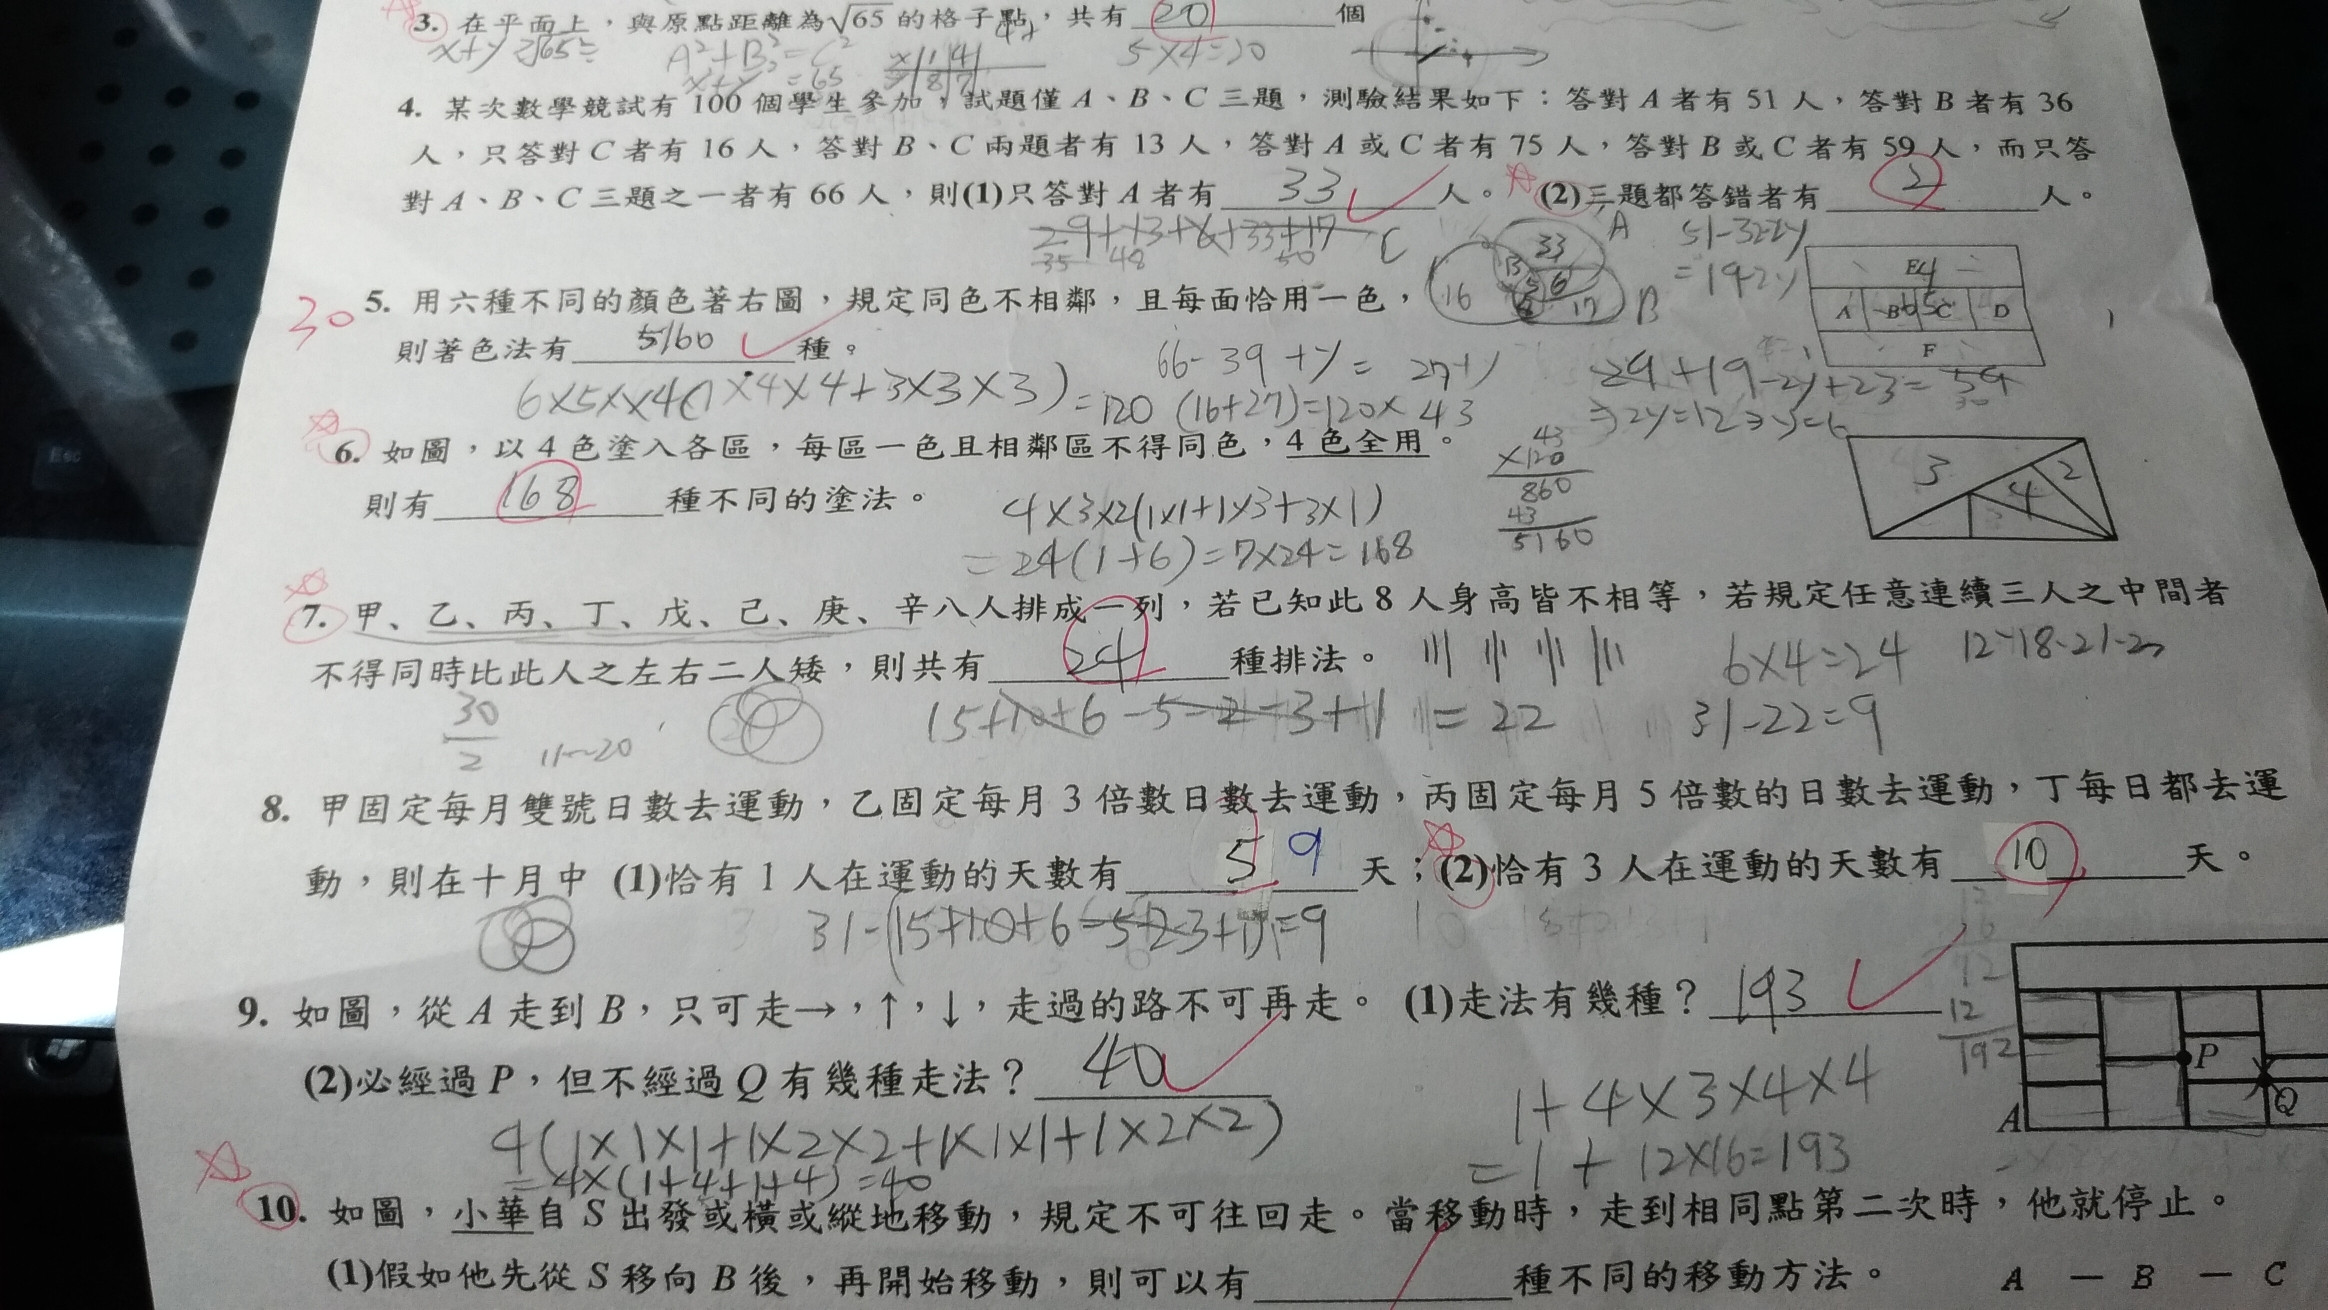 3. 在平面上，與原點距離為√65 的格子點，共有 20 個
5×4=20
4. 某次數學競試有 100 個學生參加，試題僅 A、B、C 三題，測驗結果如下：答對 A 者有 51 人，答對 B 者有 36
人，只答對 C 者有 16 人，答對 B、C 兩題者有 13 人，答對 A 或 C 者有 75 人，答對 B 或 C 者有 59 人，而只答
對 A、B、C 三題之一者有 66 人，則(1)只答對 A 者有 33 人。 (2)三題都答錯者有 2 人。
29+13+6+33+17
35 48 50
C A 33 16 17 B
5. 用六種不同的顏色著右圖，規定同色不相鄰，且每面恰用一色，
30
則著色法有 5160 種。
E A B C D F
66-39+y= 27+y
=120 (16+27)=120×43
⇒2y=12⇒y=6
6. 如圖，以 4 色塗入各區，每區一色且相鄰區不得同色，4 色全用。
則有 168 種不同的塗法。
4×3×2(1×1+1×3+3×1)
=24(1+6)=7×24=168
43
×120
860
43
5160
3 4 2
7. 甲、乙、丙、丁、戊、己、庚、辛八人排成一列，若已知此 8 人身高皆不相等，若規定任意連續三人之中間者
不得同時比此人之左右二人矮，則共有 24 種排法。
6×4=24
30
2
11~20
15+10+6-5-2-3+1 = 22
31-22=9
8. 甲固定每月雙號日數去運動，乙固定每月 3 倍數日數去運動，丙固定每月 5 倍數的日數去運動，丁每日都去運
動，則在十月中 (1)恰有 1 人在運動的天數有 5 9 天；(2)恰有 3 人在運動的天數有 10 天。
31-(15+10+6-5-2-3+1)=9
9. 如圖，從 A 走到 B，只可走→，↑，↓，走過的路不可再走。 (1)走法有幾種？ 193
12
192
(2)必經過 P，但不經過 Q 有幾種走法？ 40
P
Q
A
4(1×1×1+1×2×2+1×1×1+1×2×2)
=4×(1+4+1+4)=40
1+4×3×4×4
=1+12×16=193
10. 如圖，小華自 S 出發或橫或縱地移動，規定不可往回走。當移動時，走到相同點第二次時，他就停止。
(1)假如他先從 S 移向 B 後，再開始移動，則可以有 種不同的移動方法。
A — B — C